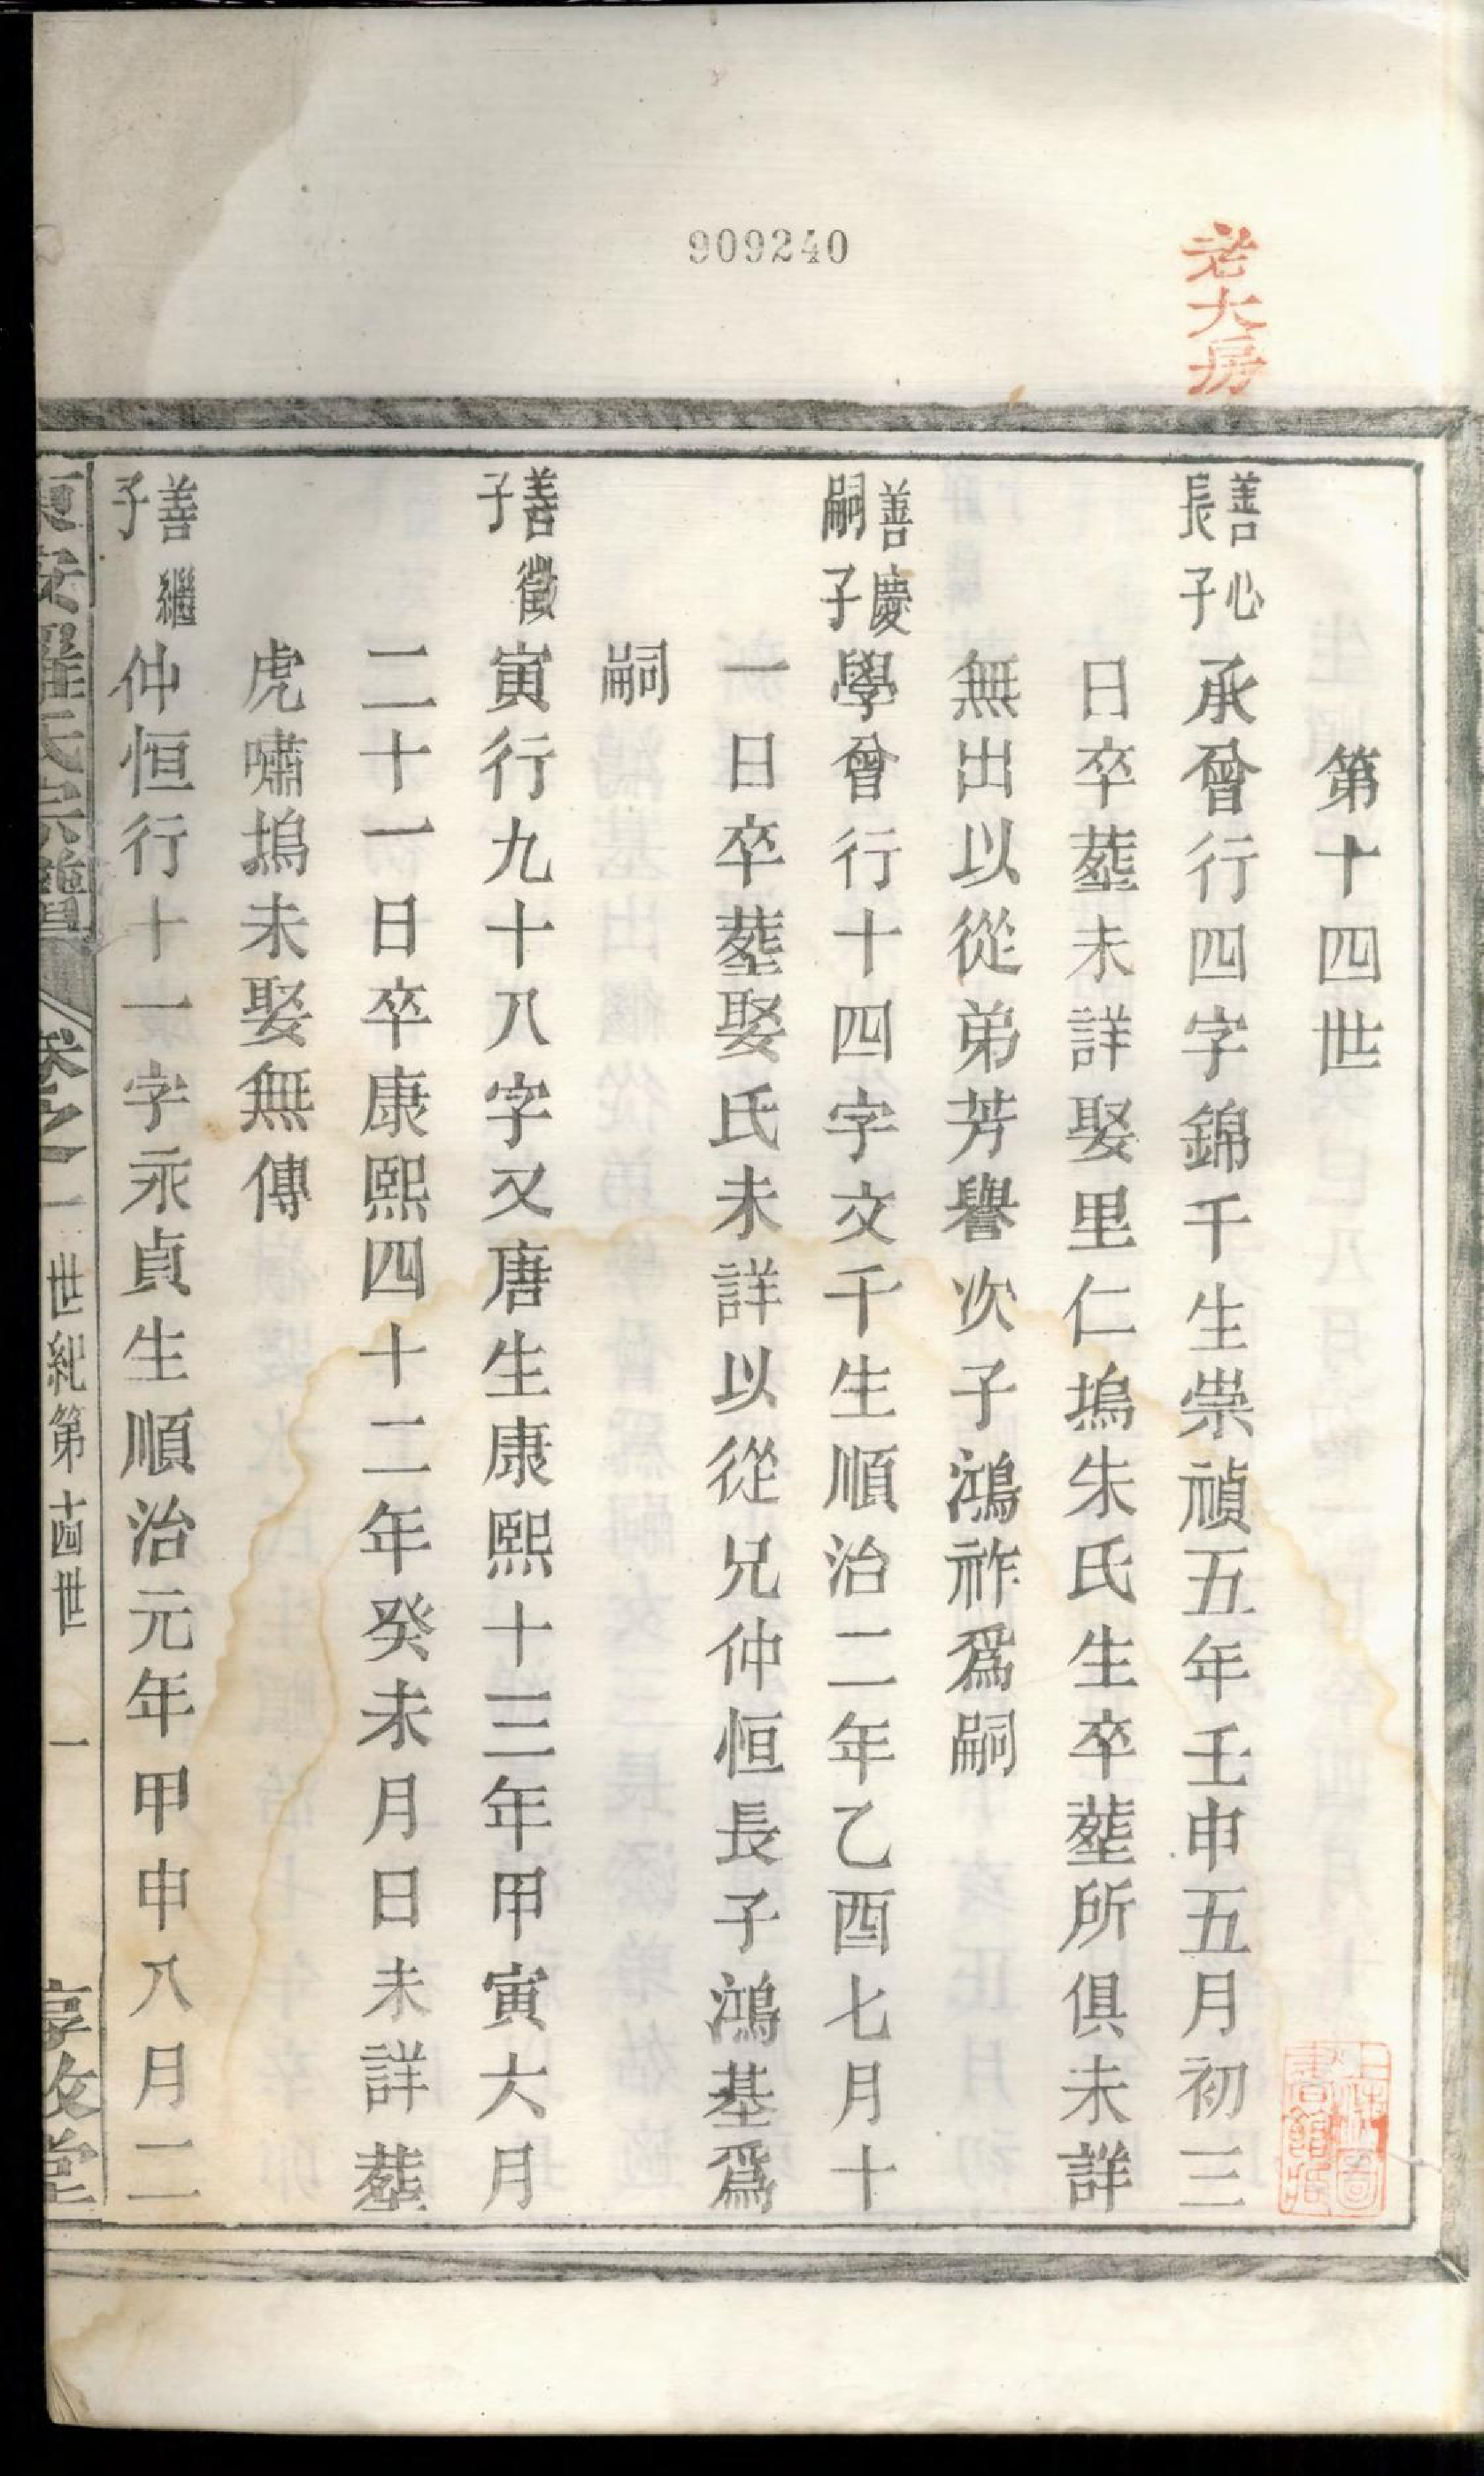 909240
老大房
第十四世
善心長子
承曾行四字錦千生崇禎五年壬申五月初三
日卒塟未詳娶里仁塢朱氏生卒塟所俱未詳
無出以從弟芳譽次子鴻祚爲嗣
善慶嗣子
學曾行十四字文千生順治二年乙酉七月十
一日卒塟娶氏未詳以從兄仲恒長子鴻基爲
嗣
善徵子
寅行九十八字又唐生康熙十三年甲寅六月
二十一日卒康熙四十二年癸未月日未詳塟
虎嘯塢未娶無傳
善繼子
仲恒行十一字永貞生順治元年甲申八月二
東安羅氏宗譜
卷之一
世紀第十四世
一
惇敘堂
上海圖書館藏